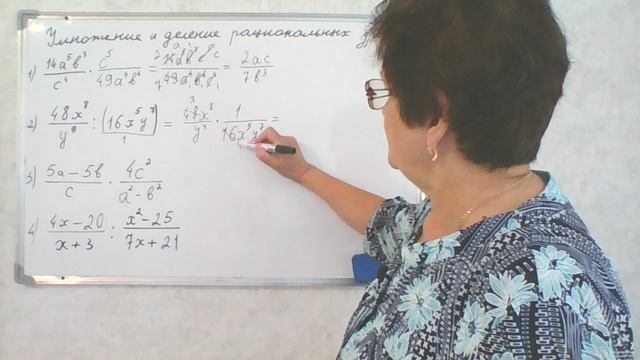 Умножение и деление рациональных
1) 14a⁵b³/c⁴ · c⁵/49a⁴b⁶ = 14a⁵b³c⁵/49a⁴b⁶c⁴ = 2ac/7b³
2) 48x⁸/y⁹ : (16x⁵y⁷)/1 = 48x⁸/y⁹ · 1/16x⁵y⁷ =
3) 5a-5b/c · 4c²/a²-b²
4) 4x-20/x+3 : x²-25/7x+21